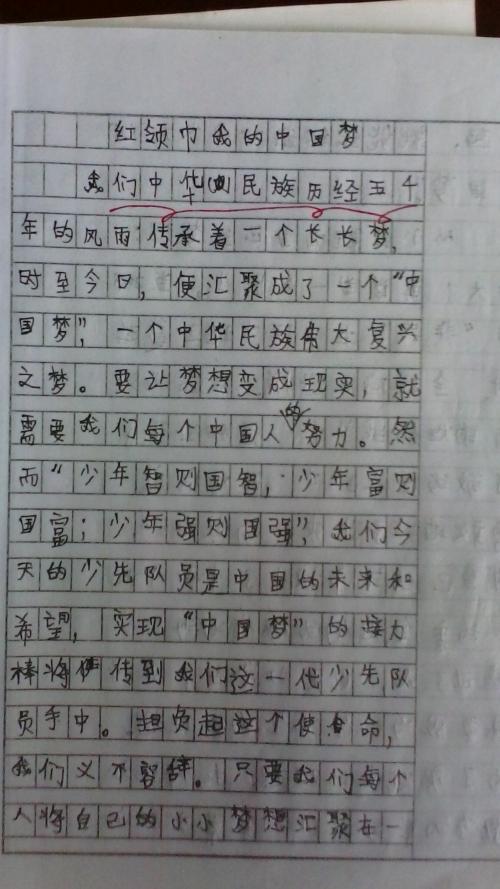 红领巾我的中国梦
我们中华民族历经五千
年的风雨传承着一个长长梦,
时至今日,便汇聚成了一个“中
国梦”,一个中华民族伟大复兴
之梦。要让梦想变成现实,就
需要我们每个中国人的努力。然
而“少年智则国智,少年富则
国富;少年强则国强”,我们今
天的少先队员是中国的未来和
希望,实现“中国梦”的接力
棒将传到我们这一代少先队
员手中。担负起这个使命,
我们义不容辞。只要我们每个
人将自己的小小梦想汇聚在一